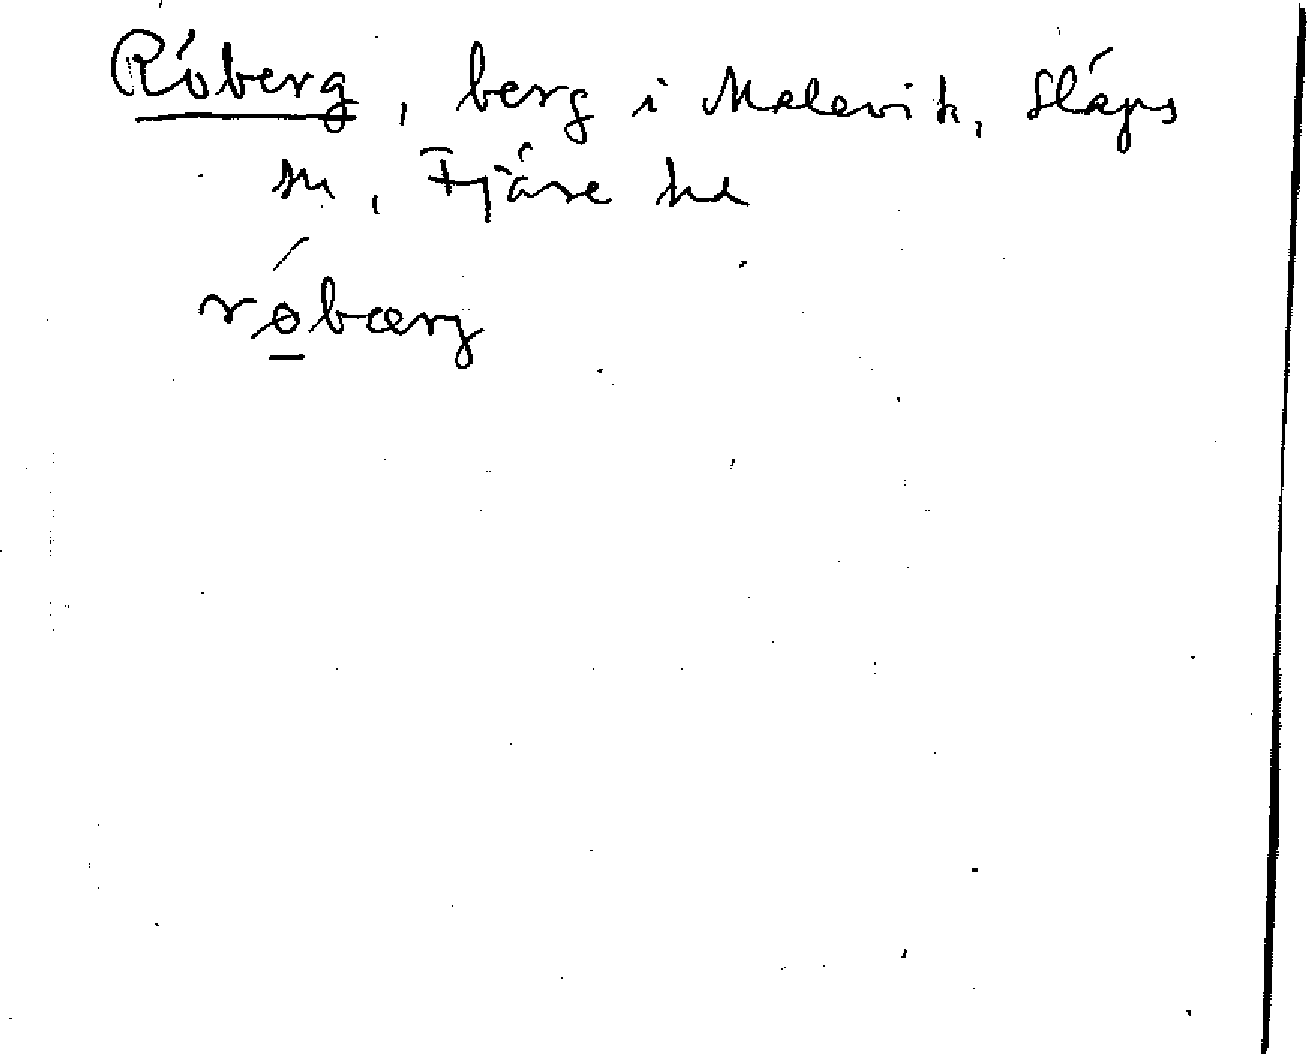 Róberg, berg i Malevik, Släps
sn, Fjäre hd
róbærg